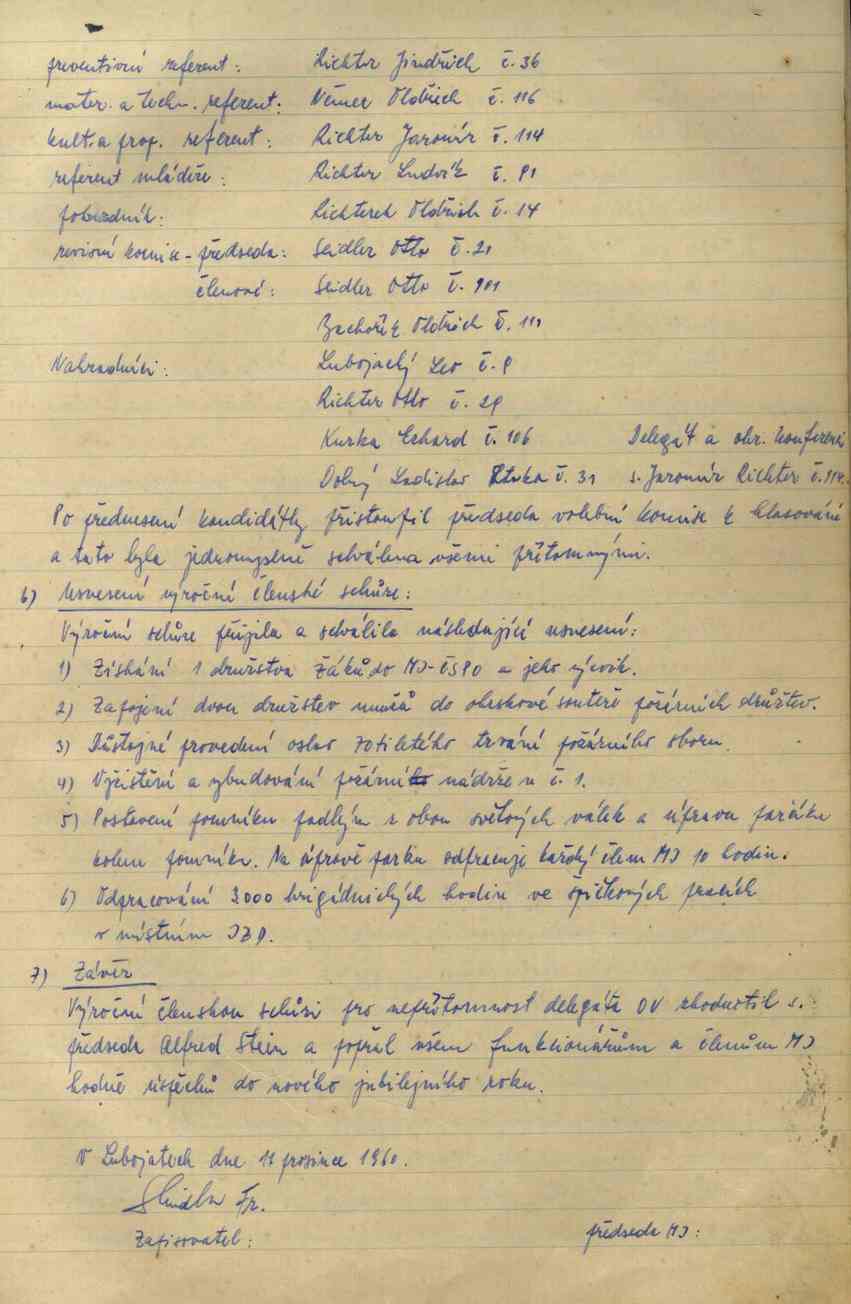 preventivní referent: Richter Jindřich č. 36
mater. a techn. referent: Němec Oldřich č. 116
kult. a prop. referent: Richter Jaromír č. 114
referent mládeže: Richter Ludvík č. 91
pobezdník: Richterek Oldřich č. 14
revisní komise - předseda: Seidler Otto č. 21
členové: Seidler Otto č. 101
Bachořík Oldřich č. 111
Nahradníci: Lubojacký Leo č. 9
Richter Otto č. 29
Kurka Erhard č. 106 Delegát a okr. konferenci
Dobný Ladislav č. 31 s. Jaromír Richter č. 114.
Po přednesení kandidátky přistoupil předseda volební komise k hlasování
a tato byla jednomyslně schválena všemi přítomnými.
6) Usnesení výroční členské schůze:
Výroční schůze přijila a schválila následující usnesení:
1) Získání 1 družstva žáků do MJ-ČSPO a jeho výcvik.
2) Zapojení dvou družstev mužů do okrskové soutěže požárních družstev.
3) Důstojné provedení oslav 70tiletého trvání požárního sboru.
4) Vyčistění a vybudování požární nádrže u č. 1.
5) Postavení pomníku padlým z obou světových válek a úpravu parčíku
kolem pomníku. Na úpravě parku odpracuje každý člen MJ 10 hodin.
6) Odpracování 3000 brigádnických hodin ve špičkových pracích
v místním JZD.
7) Závěr
Výroční členskou schůzi pro nepřítomnost delegáta OV zhodnotil s.
předseda Alfred Stein a popřál všem funkcionářům a členům MJ
hodně úspěchů do nového jubilejního roku.
V Lubojatech dne 11 prosince 1960.
Fr.
Zapisovatel: předseda MJ: